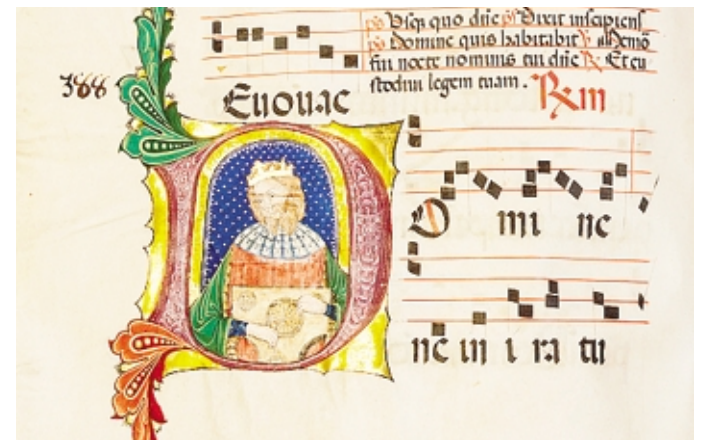 ps Usq̄ quo dn̄e ps Dixit insipiens
ps Domine quis habitabit
fui nocte nominis tui dn̄e R Et cu
stodiui legem tuam. Rx iii
388
Euouae
Do mi ne
ne in i ra tu